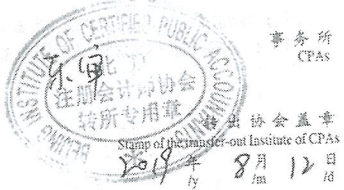 事务所
CPAs
BEIJING INSTITUTE OF CERTIFIED PUBLIC ACCOUNTANTS
北京
注册会计师协会
转所专用章
转出协会盖章
Stamp of the transfer-out Institute of CPAs
2019年 8月 12日
/y /m /d